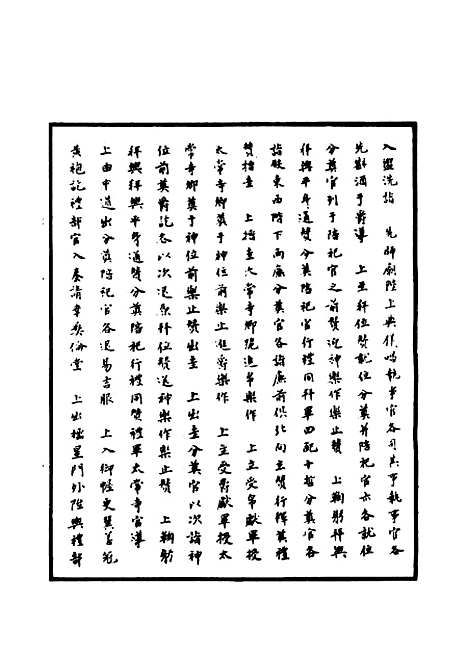 入盥洗訖　先師廟陛上典儀唱執事官各司其事執事官各
先斟酒于爵導　上至拜位贊就位分奠并陪祀官亦各就位
分奠官列于陪祀官之前贊迎神樂作樂止贊　上鞠躬拜興
拜興平身通贊分奠陪祀官行禮同拜畢四配十哲分奠官各
詣殿東西階下兩廡分奠官各詣廡前俱北向立贊行釋奠禮
贊搢圭　上搢圭太常寺卿跪進帛樂作　上立受帛獻畢授
太常寺卿奠于神位前樂止進爵樂作　上立受爵獻畢授太
常寺卿奠于神位前樂止贊出圭　上出圭分奠官以次詣神
位前奠爵訖各以次退原拜位贊送神樂作樂止贊　上鞠躬
拜興拜興平身通贊分奠陪祀行禮同贊禮畢太常寺官導
上由中道出分奠陪祀官各退易吉服　上入御幄更翼善冠
黃袍訖禮部官入奏請幸彝倫堂　上出櫺星門外陞輿禮部